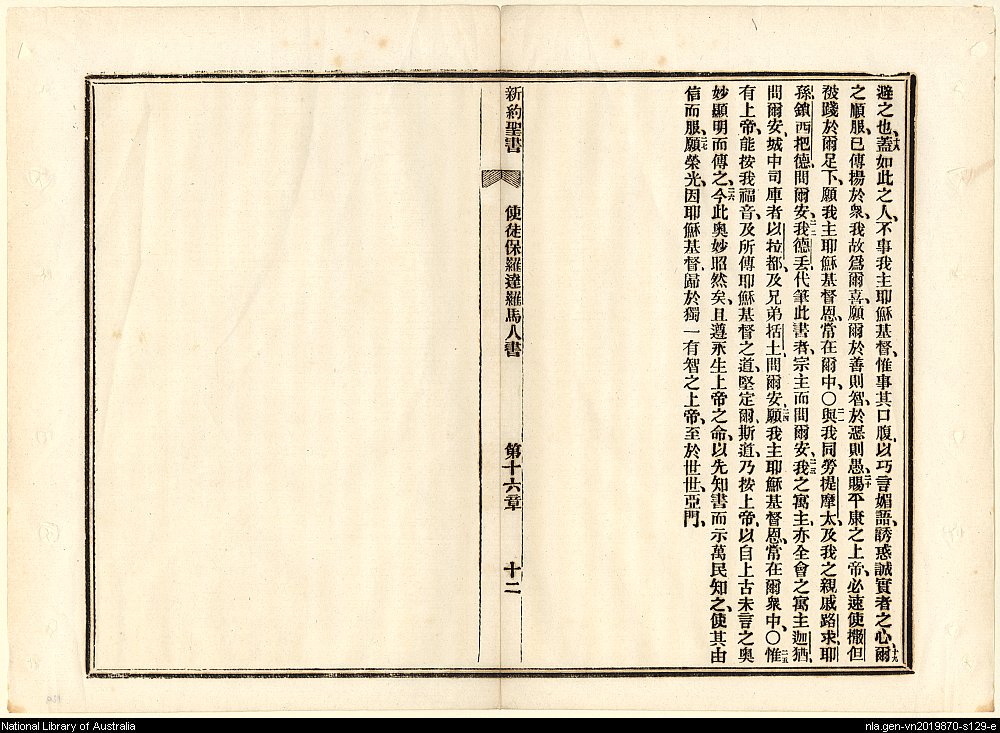 避之也、十八蓋如此之人、不事我主耶穌基督、惟事其口腹、以巧言媚語、誘惑誠實者之心、十九爾
之順服、已傳揚於衆、我故爲爾喜、願爾於善則智、於惡則愚、二十賜平康之上帝、必速使撒但
被踐於爾足下、願我主耶穌基督恩、常在爾中、〇二一與我同勞提摩太、及我之親戚路求、耶
孫、鎖西把德、問爾安、二二我德丟代筆此書者、宗主而問爾安、二三我之寓主、亦全會之寓主迦猶、
問爾安、城中司庫者以拉都、及兄弟括土、問爾安、二四願我主耶穌基督恩、常在爾衆中、〇二五惟
有上帝、能按我福音、及所傳耶穌基督之道、堅定爾、斯道、乃按上帝、以自上古未言之奧
妙、顯明而傳之、二六今此奥妙昭然矣、且遵永生上帝之命、以先知書而示萬民知之、使其由
信而服、二七願榮光、因耶穌基督、歸於獨一有智之上帝、至於世世、亞門、
新約聖書
使徒保羅達羅馬人書
第十六章
十二
National Library of Australia
nla.gen-vn2019870-s129-e